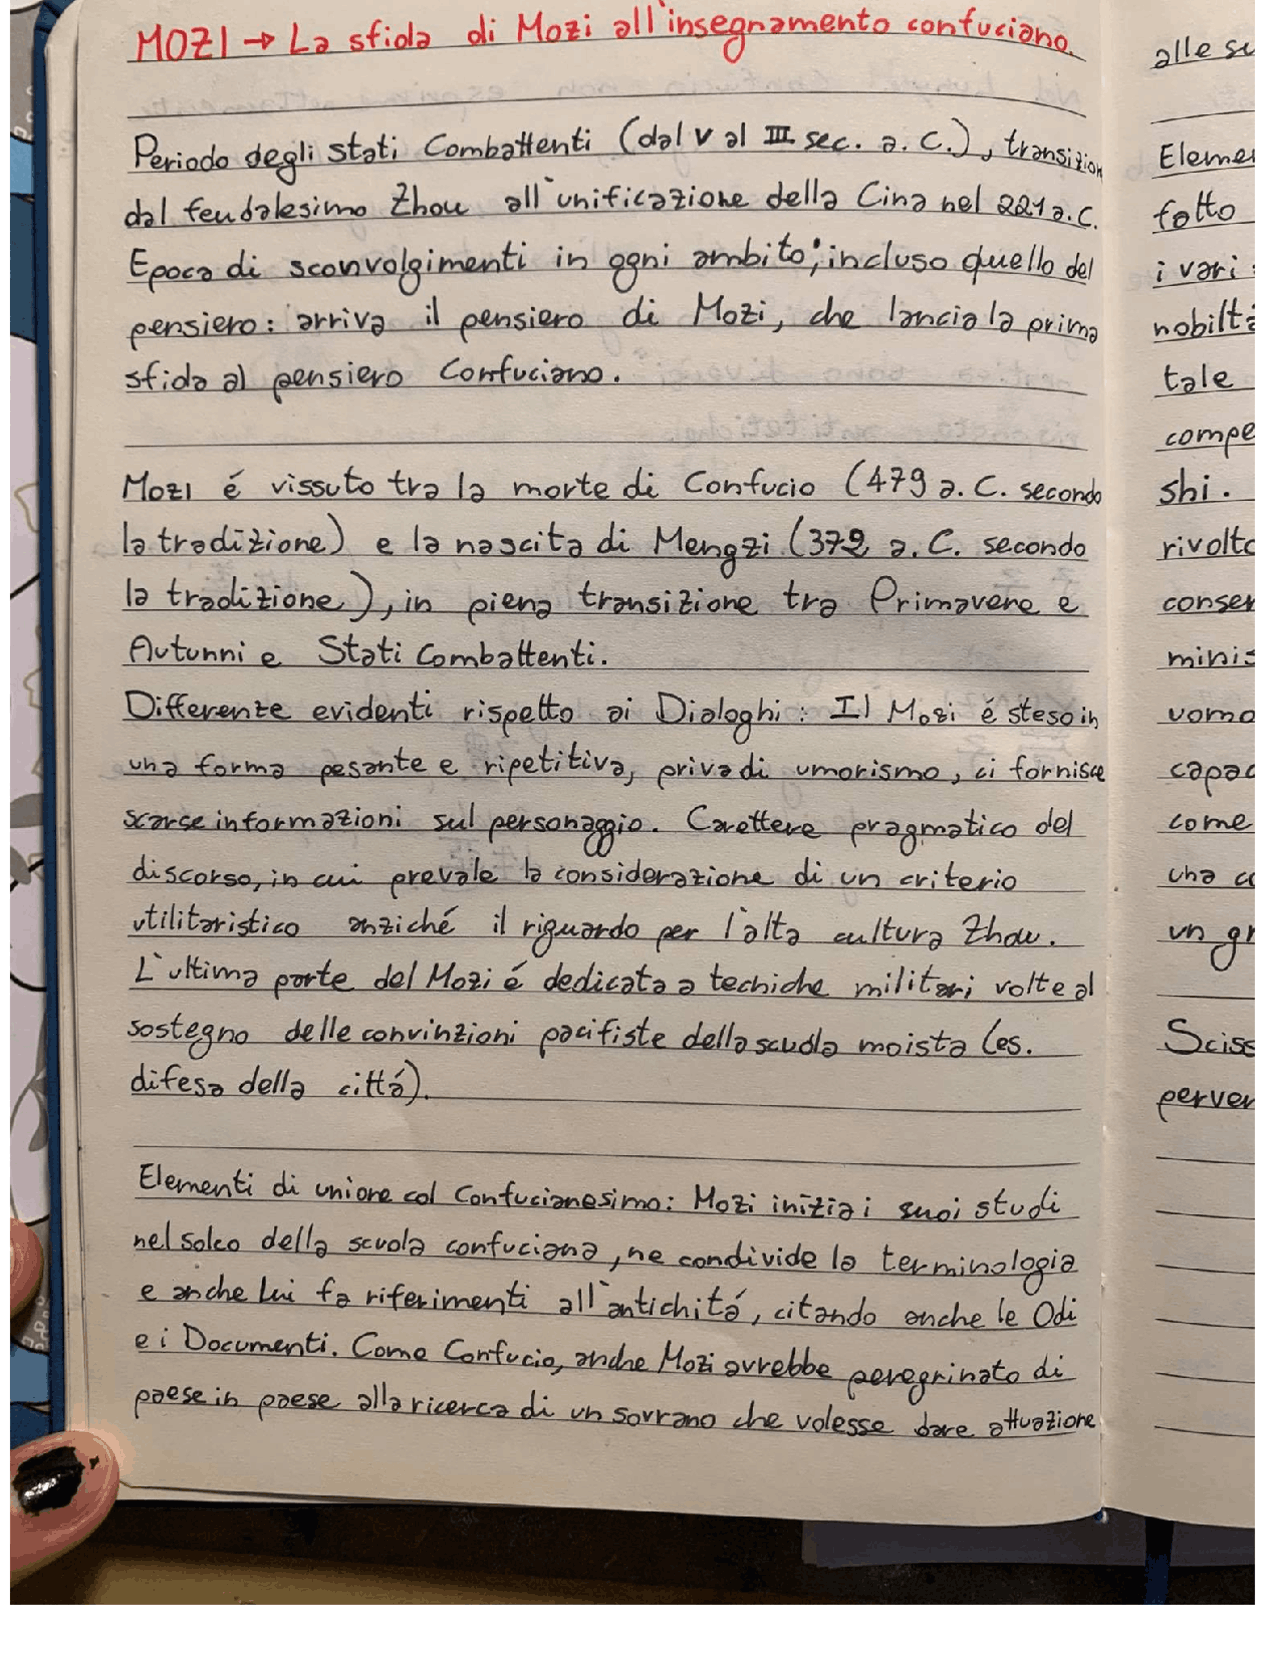 MOZI → La sfida di Mozi all'insegnamento confuciano.
Periodo degli stati Combattenti (dal V al III sec. a. C.), transizion
dal feudalesimo Zhou all'unificazione della Cina nel 221 a.C.
Epoca di sconvolgimenti in ogni ambito, incluso quello del
pensiero: arriva il pensiero di Mozi, che lancia la prima
sfida al pensiero Confuciano.
Mozi é vissuto tra la morte di Confucio (479 a. C. secondo
la tradizione) e la nascita di Mengzi (372 a. C. secondo
la tradizione), in piena transizione tra Primavere e
Autunni e Stati Combattenti.
Differenze evidenti rispetto ai Dialoghi: Il Mozi é steso in
una forma pesante e ripetitiva, priva di umorismo, ci fornisce
scarse informazioni sul personaggio. Carattere pragmatico del
discorso, in cui prevale la considerazione di un criterio
utilitaristico anziché il riguardo per l'alta cultura Zhou.
L'ultima parte del Mozi é dedicata a techiche militari volte al
sostegno delle convinzioni pacifiste della scuola moista (es.
difesa della cittá).
Elementi di unione col Confucianesimo: Mozi inizia i suoi studi
nel solco della scuola confuciana, ne condivide la terminologia
e anche lui fa riferimenti all'antichitá, citando anche le Odi
e i Documenti. Come Confucio, anche Mozi avrebbe peregrinato di
paese in paese alla ricerca di un sovrano che volesse dare attuazione
alle su
Eleme
fatto
i vari
nobiltà
tale
compe
shi.
rivolto
conser
minis
uomo
capac
come
una c
un gr
Sciss
perver